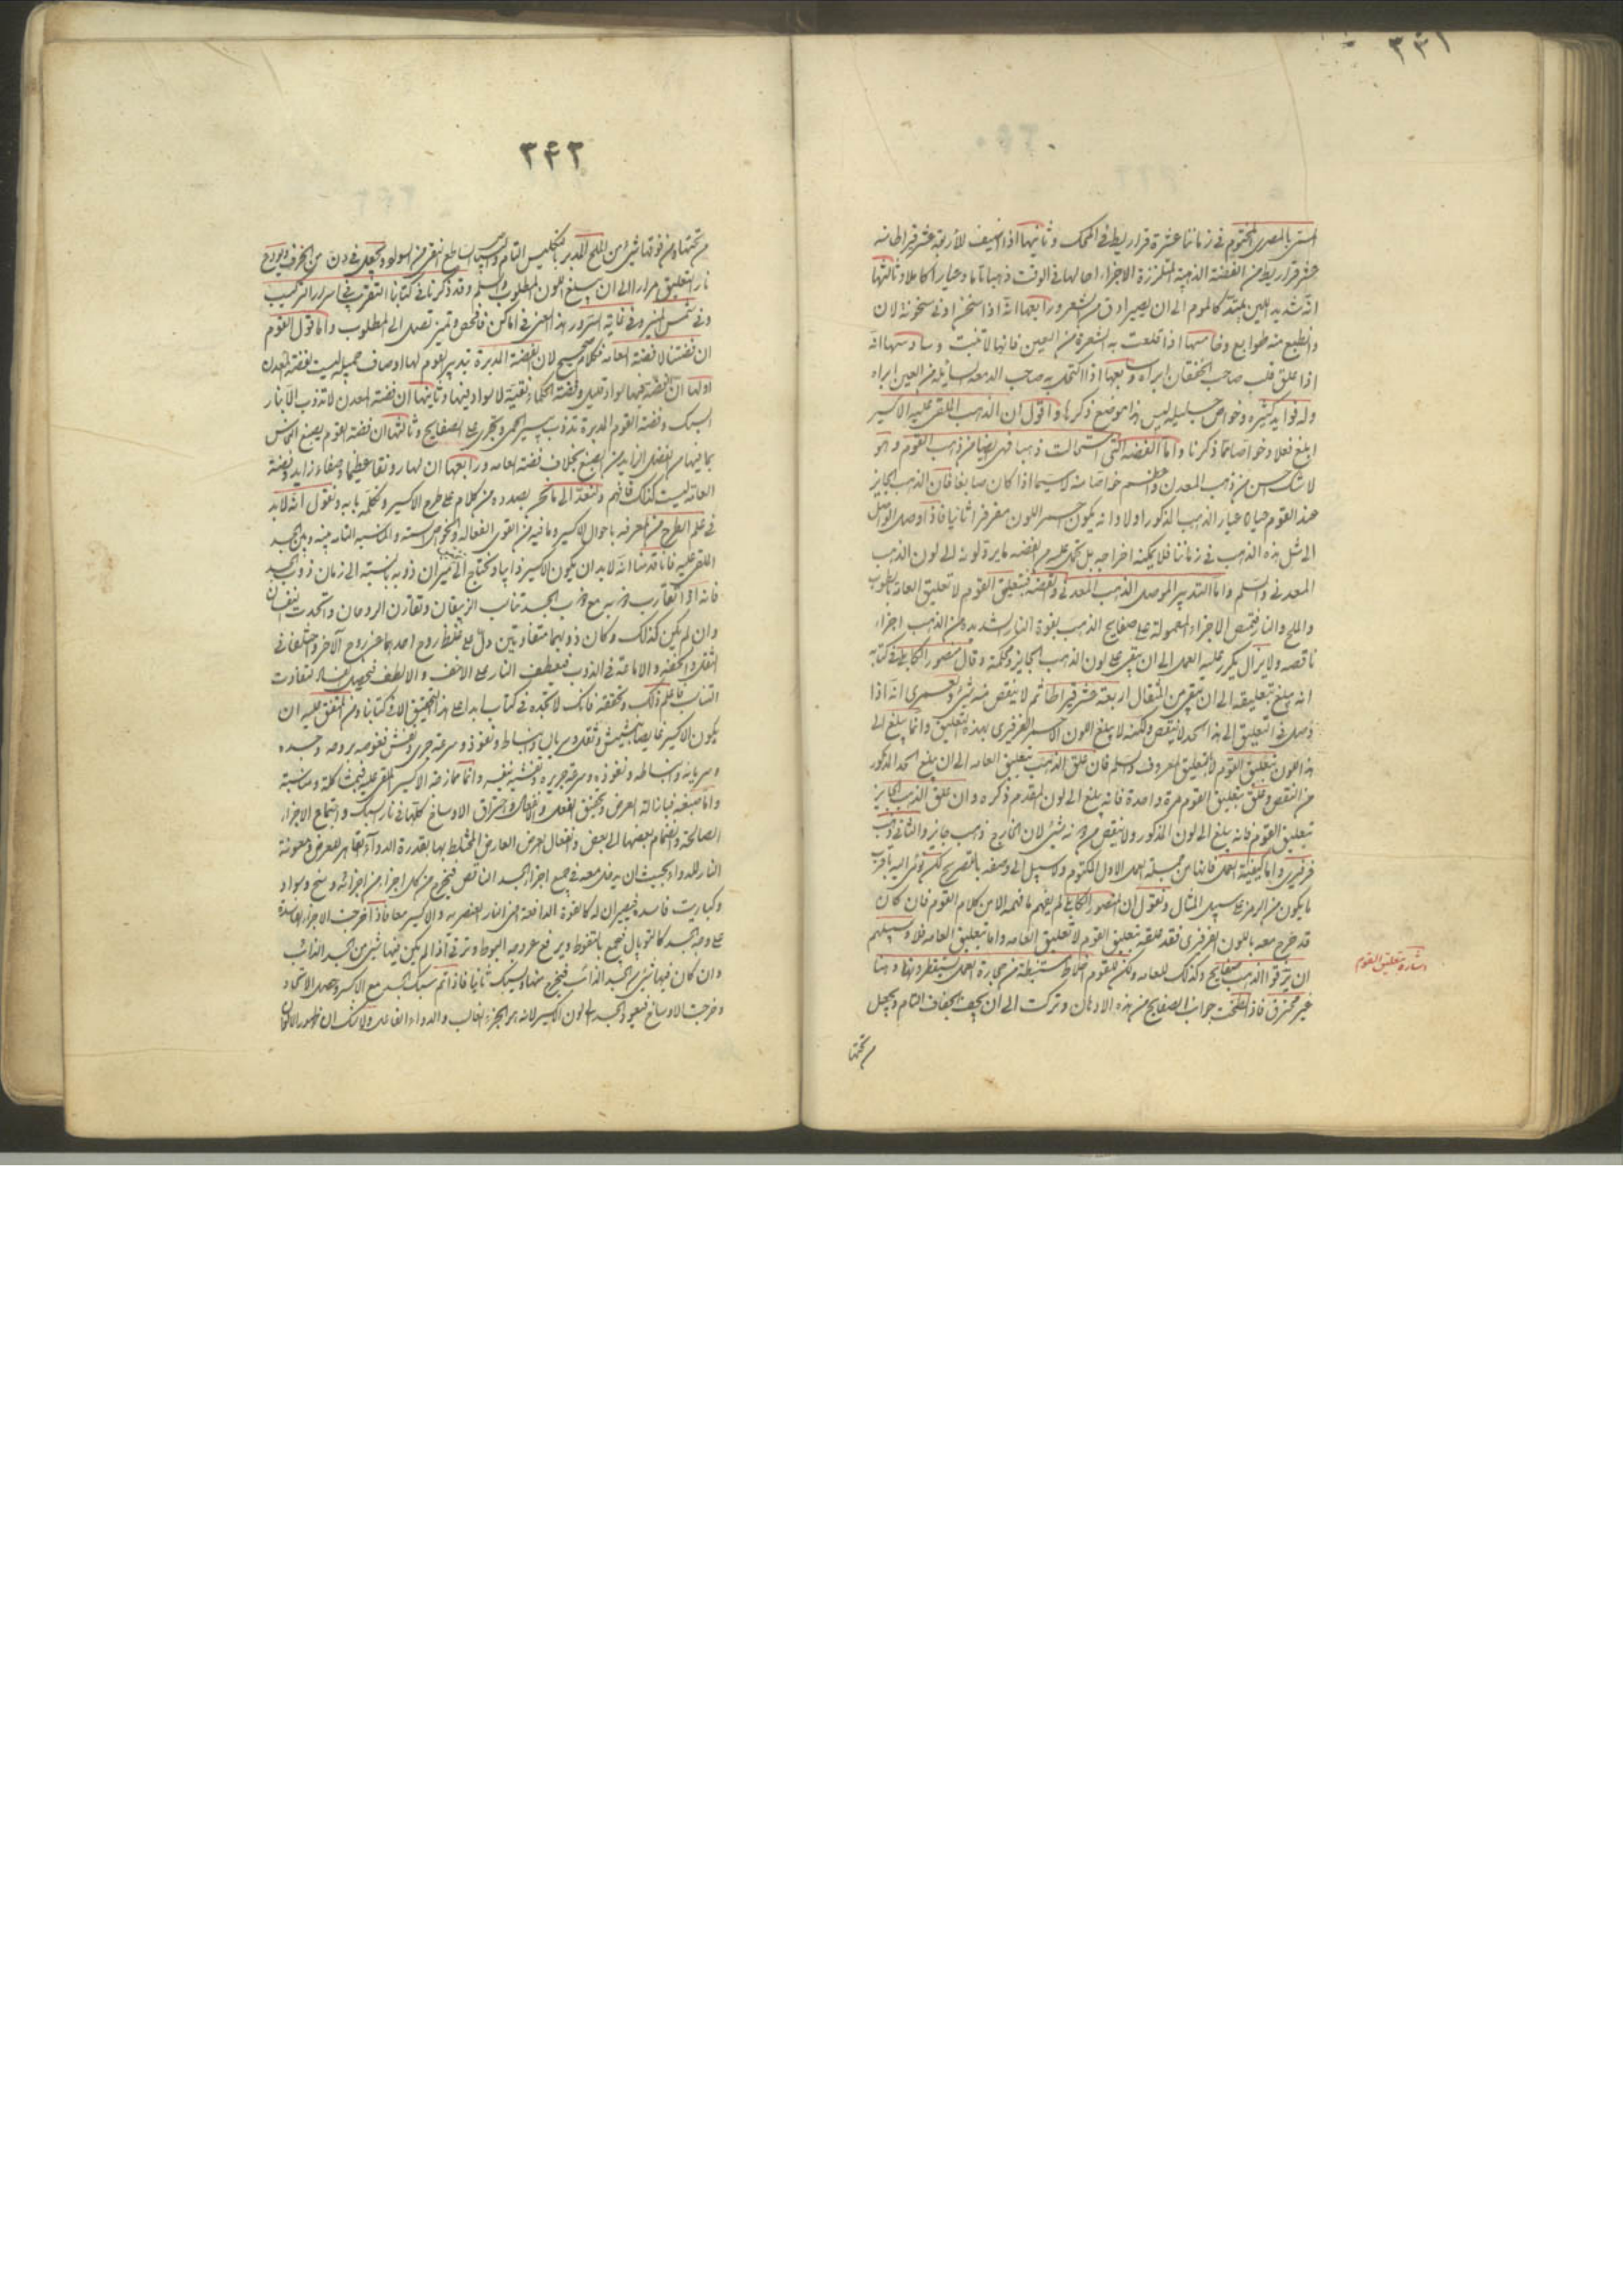 ٣٤١
المسمى بالمصرى المختوم فى زماننا عشرة قراريط فى المحك وثانيها اذا اضيف لأربعة عشر قيراطا منه
عشر قراريط من الفضة الذهبية المتلززة الاجزاء احالها فى الوقت ذهبا تاما وعيارا كاملا وثالثها
انه شديد اللين يمتد كالموم الى ان يصير ادق من الشعر ورابعها انه اذا سخن ادنى سخونة لان
وانطبع منه طوابع وخامسها اذا قلعت به الشعرة من العين فانها لا تنبت وسادسها انه
اذا علق على صاحب الخفقان ابراه وسابعها اذا اكتحل به صاحب الدمعة السائلة من العين ابراه
وله فوايد كثيرة وخواص جليلة ليس هذا موضع ذكرها واقول ان الذهب الملقى عليه الاكسير
ابلغ فعلا وخواصا مما ذكرنا واما الفضة التى استحالت ذهبا فهى ايضا من ذهب القوم وهو
لا شك احسن من ذهب المعدن واعظم خواصا منه لا سيما اذا كان صابغا فان الذهب الجايز
عند القوم حياة عيار الذهب المذكور اولا وانه يكون احمر اللون مفرفرا ثانيا فاذا اوصل الواصل
الى مثل هذه الذهب فى زماننا فلا يمكنه اخراجه بل تحمل عليه من الفضة ما يرد لونه الى لون الذهب
المعدنى والسلم واما التدبير الموصل الذهب المعدنى والفضة فبتعليق القوم لا تعليق العامة بالطوب
والملح والنار فتمص الاجزاء المعمولة على صفايح الذهب بقوة النار الشديدة من الذهب اجزاء
ناقصه ولا يزال يكرر عليه العمل الى ان يبقى على لون الذهب الجايز ومحكه وقال منصور الكاملى فى كتابه
انه يبلغ بتعليقه الى ان يبقى من المثقال اربعة عشر قيراطا ثم لا ينقص منه شئ ولعمرى انه اذا
وصل فى التعليق الى هذا الحد لا ينقص ولكنه لا يبلغ اللون الاحمر الفرفيرى بهذه التعليق وانما يبلغ الى
هذا اللون بتعليق القوم لا بالتعليق المعروف والسلم فان علق الذهب بتعليق العامه الى ان يبلغ الحد المذكور
من النقص وعلق بتعليق القوم مرة واحدة فانه يبلغ الى لون المقدم ذكره وان علق الذهب الجايز
بتعليق القوم فانه يبلغ الى لون المذكور ولا ينقص من وزنه شئ لان الخارج ذهب جايز والثانى ذهب
فرفيرى واما كيفية العمل فانها من جملة العمل الاول المكتوم ولا سبيل الى وصفه بالتصريح لكن نومى اليه باقرب
ما يكون من الرمز على سبيل المثال ونقول ان المنصور الكاملى لم يفهم ما فهمه الا من كلام القوم فان كان
قد خرج معه باللون الفرفيرى فقد علقه بتعليق القوم لا تعليق العامه واما بتعليق العامه فلا وسبيلهم
ان يرققوا الذهب صفايح وكذلك للعامه ولكن للقوم اخلاط مستنبطة من حجارة العمل يستقطرونها دهنا
غير محترق فاذا لطخت جوانب الصفايح من هذه الادهان وتركت الى ان يجف الجفاف التام ويجعل
من تحتها
اشارة بتعليق القوم
٣٤٢
من تحتها ومن فوقها شئ من الملح المدبر بالتكليس التام والبياض الساطع النقى من السواد ويجعل فى دن من الخزف ويودع
نار التعليق مرارا الى ان يبلغ اللون المطلوب والسلم وقد ذكرنا فى كتابنا التقريب فى اسرار التركيب
وفى شمس المنير وفى غاية السرور هذا المعنى فى اماكن فافحص وتميز تصل الى المطلوب واما قول القوم
ان فضتنا لا فضة العامه فكلام صحيح لان الفضة المدبرة بتدبير القوم لها اوصاف جميلة ليست لفضة المعدن
اولها ان الفضة فيها سواد قليل وفضة الحكماء نقية لا سواد فيها وثانيها ان فضة المعدن لا تذوب الا بنار
السبك وفضة القوم المدبرة تذوب بيسير الحمى وتجرى على الصفايح وثالثها ان فضة القوم يصبغ النحاس
بما فيها من الفضل الزايد من الصبغ بخلاف فضة العامه ورابعها ان لها رونقا عظيما وصفاء زايد وفضة
العامة ليست كذلك فافهم ولنعد الى ما نحن بصدده من كلام على طرح الاكسير وتكمله بابه ونقول انه لا بد
فى علم الطرح من المعرفه باحوال الاكسير وما فيه من القوى الفعاله والخواص الستة والمناسبة التامه بينه وبين الجسد
الملقى عليه فانا قدمنا انه لا بد ان يكون الاكسير ذايبا ويحتاج الى ميزان ذوبه بالنسبة الى زمان ذوب الجسد
فانه اذا تقارب ذوبه مع ذوب الجسد تناسب الزيبقان وتقارن الروحان واتحدت النفسان
وان لم يكن كذلك وكان ذوبهما متفاوتين دل على غلظ روح احدهما عن روح الآخر واختلفا فى
الثقل والخفة والاماعة فى الذوب فيعطف النار على الاخف والالطف فيحصل الفساد لتفاوت
التناسب فاعلم ذلك وتحققه فانك لا تجده فى كتاب ابدا على هذا التحقيق الا فى كتابنا ومن المتفق عليه ان
يكون الاكسير غايصا بتشميش وثقل وسريان وانبساط ونفوذ وسرعة جرى وتفشى نفوسه بروحه وجسده
وسريانه وانبساطه ونفوذه وسرعة جريه وتفشيه بنفسه وانما ممازجة الاكسير الملقى عليه فبمشاكلة ومناسبة
واما صبغه فبازالة العرض وتحقيق الفعل والانفعال واحتراق الاوساخ كلها فى نار السبك واجتماع الاجزاء
الصالحة وانضمام بعضها الى بعض وانفعال العرض العارض المختلط بها بقدرة الدوآء القاهر للعرض ومعونة
النار للدواء بحيث ان يدخل معه فى جميع اجزاء الجسد الناقص فيخرج من كل اجزا من اجزائه وسخ وسواد
وكباريت فاسدة فيصير ان له كالقوة الدافعة اعنى النار العنصريه والاكسير معا فاذا خرجت الاجزاء الفاسدة
على وجه الجسد كالتوبال فيجمع بالملقوط ويرفع عن وجه البوط وترمى اذا لم يكن فيها شئ من الجسد الذائب
وان كان فيها شئ من الجسد الذائب فيخرج منها ويسبك ثانيا فاذا تم سبك الجسد مع الاكسير وحصل الاتحاد
وخرجت الاوساخ فيعود الجسد الى لون الاكسير لانه هو الجزء الغالب والدواء الفاعل ولا شك ان ظهور الالوان